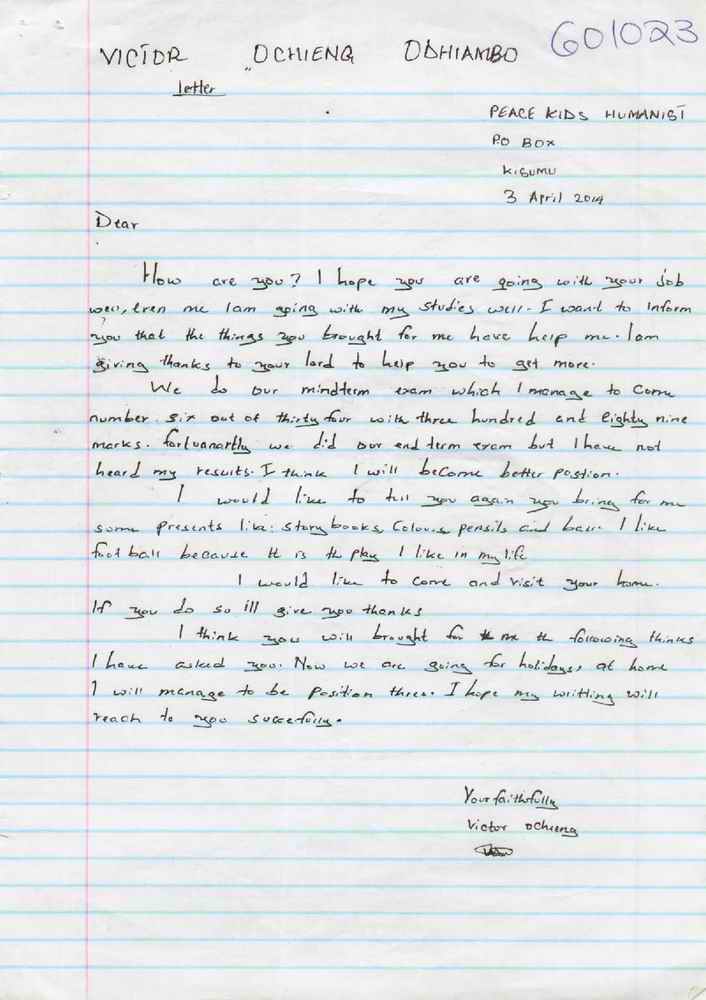 VICTOR OCHIENG ODHIAMBO 601023
letter
PEACE KIDS HUMANIST
P.O BOX
KISUMU
3 April 2014
Dear
How are you? I hope you are going with your job
well, even me Iam going with my studies well. I want to inform
you that the things you brought for me have help me. Iam
giving thanks to your lord to help you to get more.
We do our mindterm exam which I manage to come
number six out of thirty four with three hundred and eighty nine
marks. forluanartly we did our end term exam but I have not
heard my results. I think I will become better postion.
I would like to tell you again you bring for me
some presents like: story books, Colours, pensils and ball. I like
foot ball because it is the play I like in my life
I would like to come and visit your home.
If you do so ill give you thanks
I think you will brought for me the following thinks
I have asked you. Now we are going for holidays, at home
I will manage to be position three. I hope my writting will
reach to you succefully.
Your faithfully
Victor Ochieng